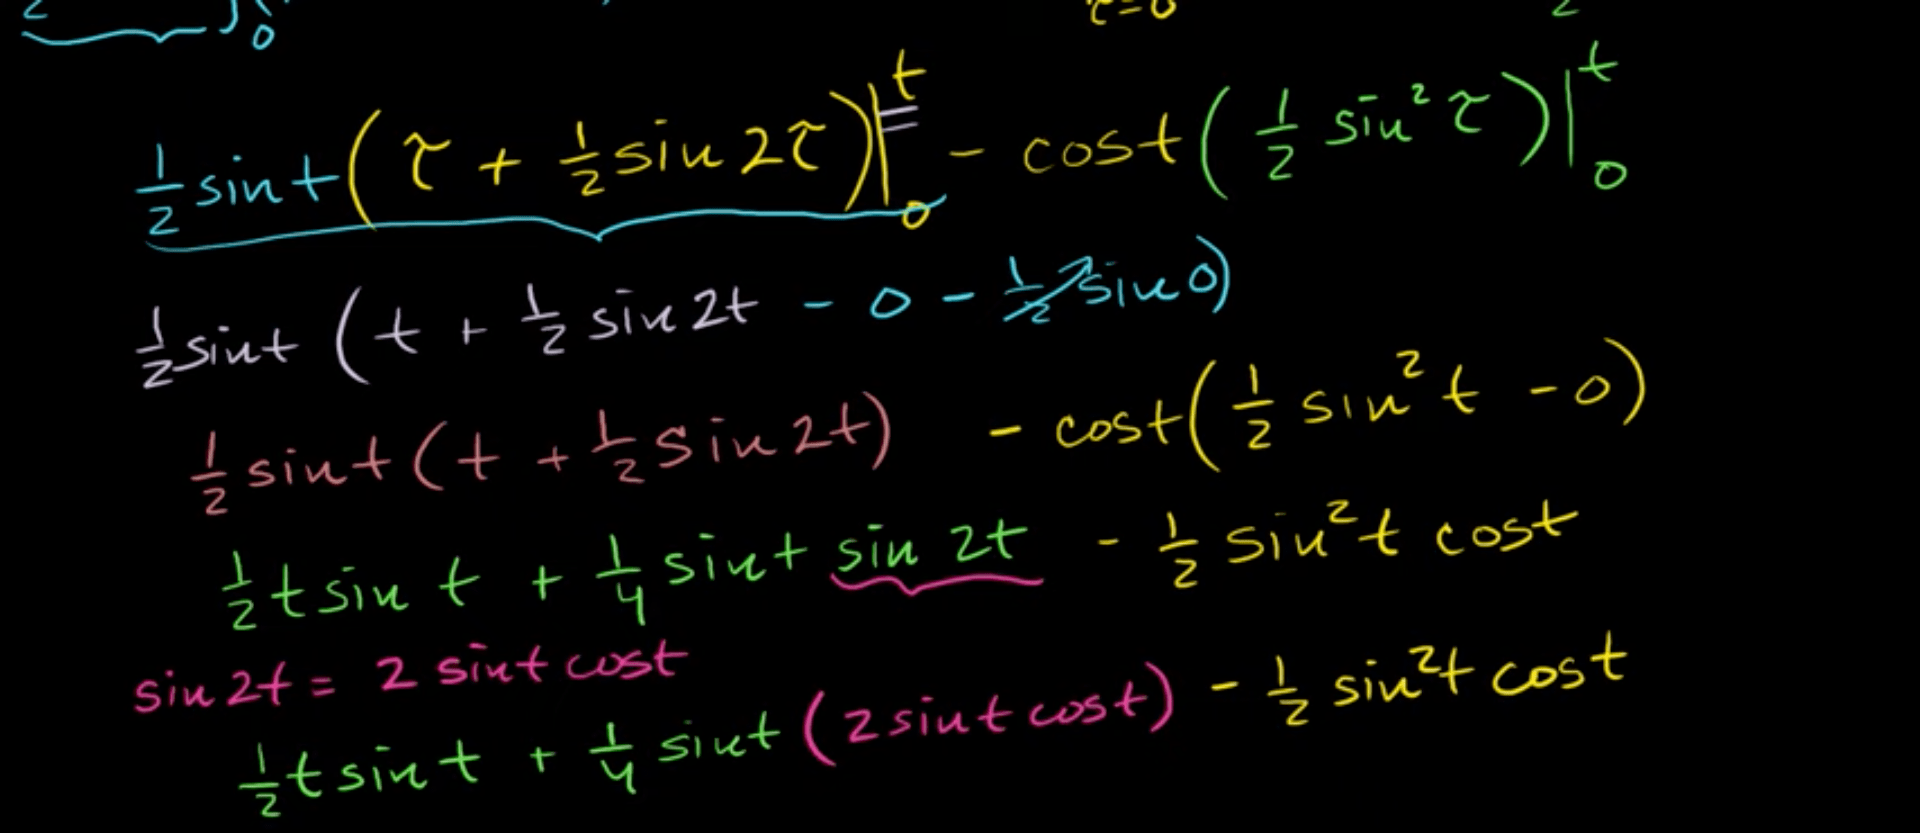 2 ∫₀ τ=0 2
½ sin t (τ + ½ sin 2τ)|₀ᵗ - cos t (½ sin² τ)|₀ᵗ
½ sin t (t + ½ sin 2t - 0 - ½ sin 0)
½ sin t (t + ½ sin 2t) - cos t (½ sin² t - 0)
½ t sin t + ¼ sin t sin 2t - ½ sin² t cos t
sin 2t = 2 sin t cos t
½ t sin t + ¼ sin t (2 sin t cos t) - ½ sin² t cos t